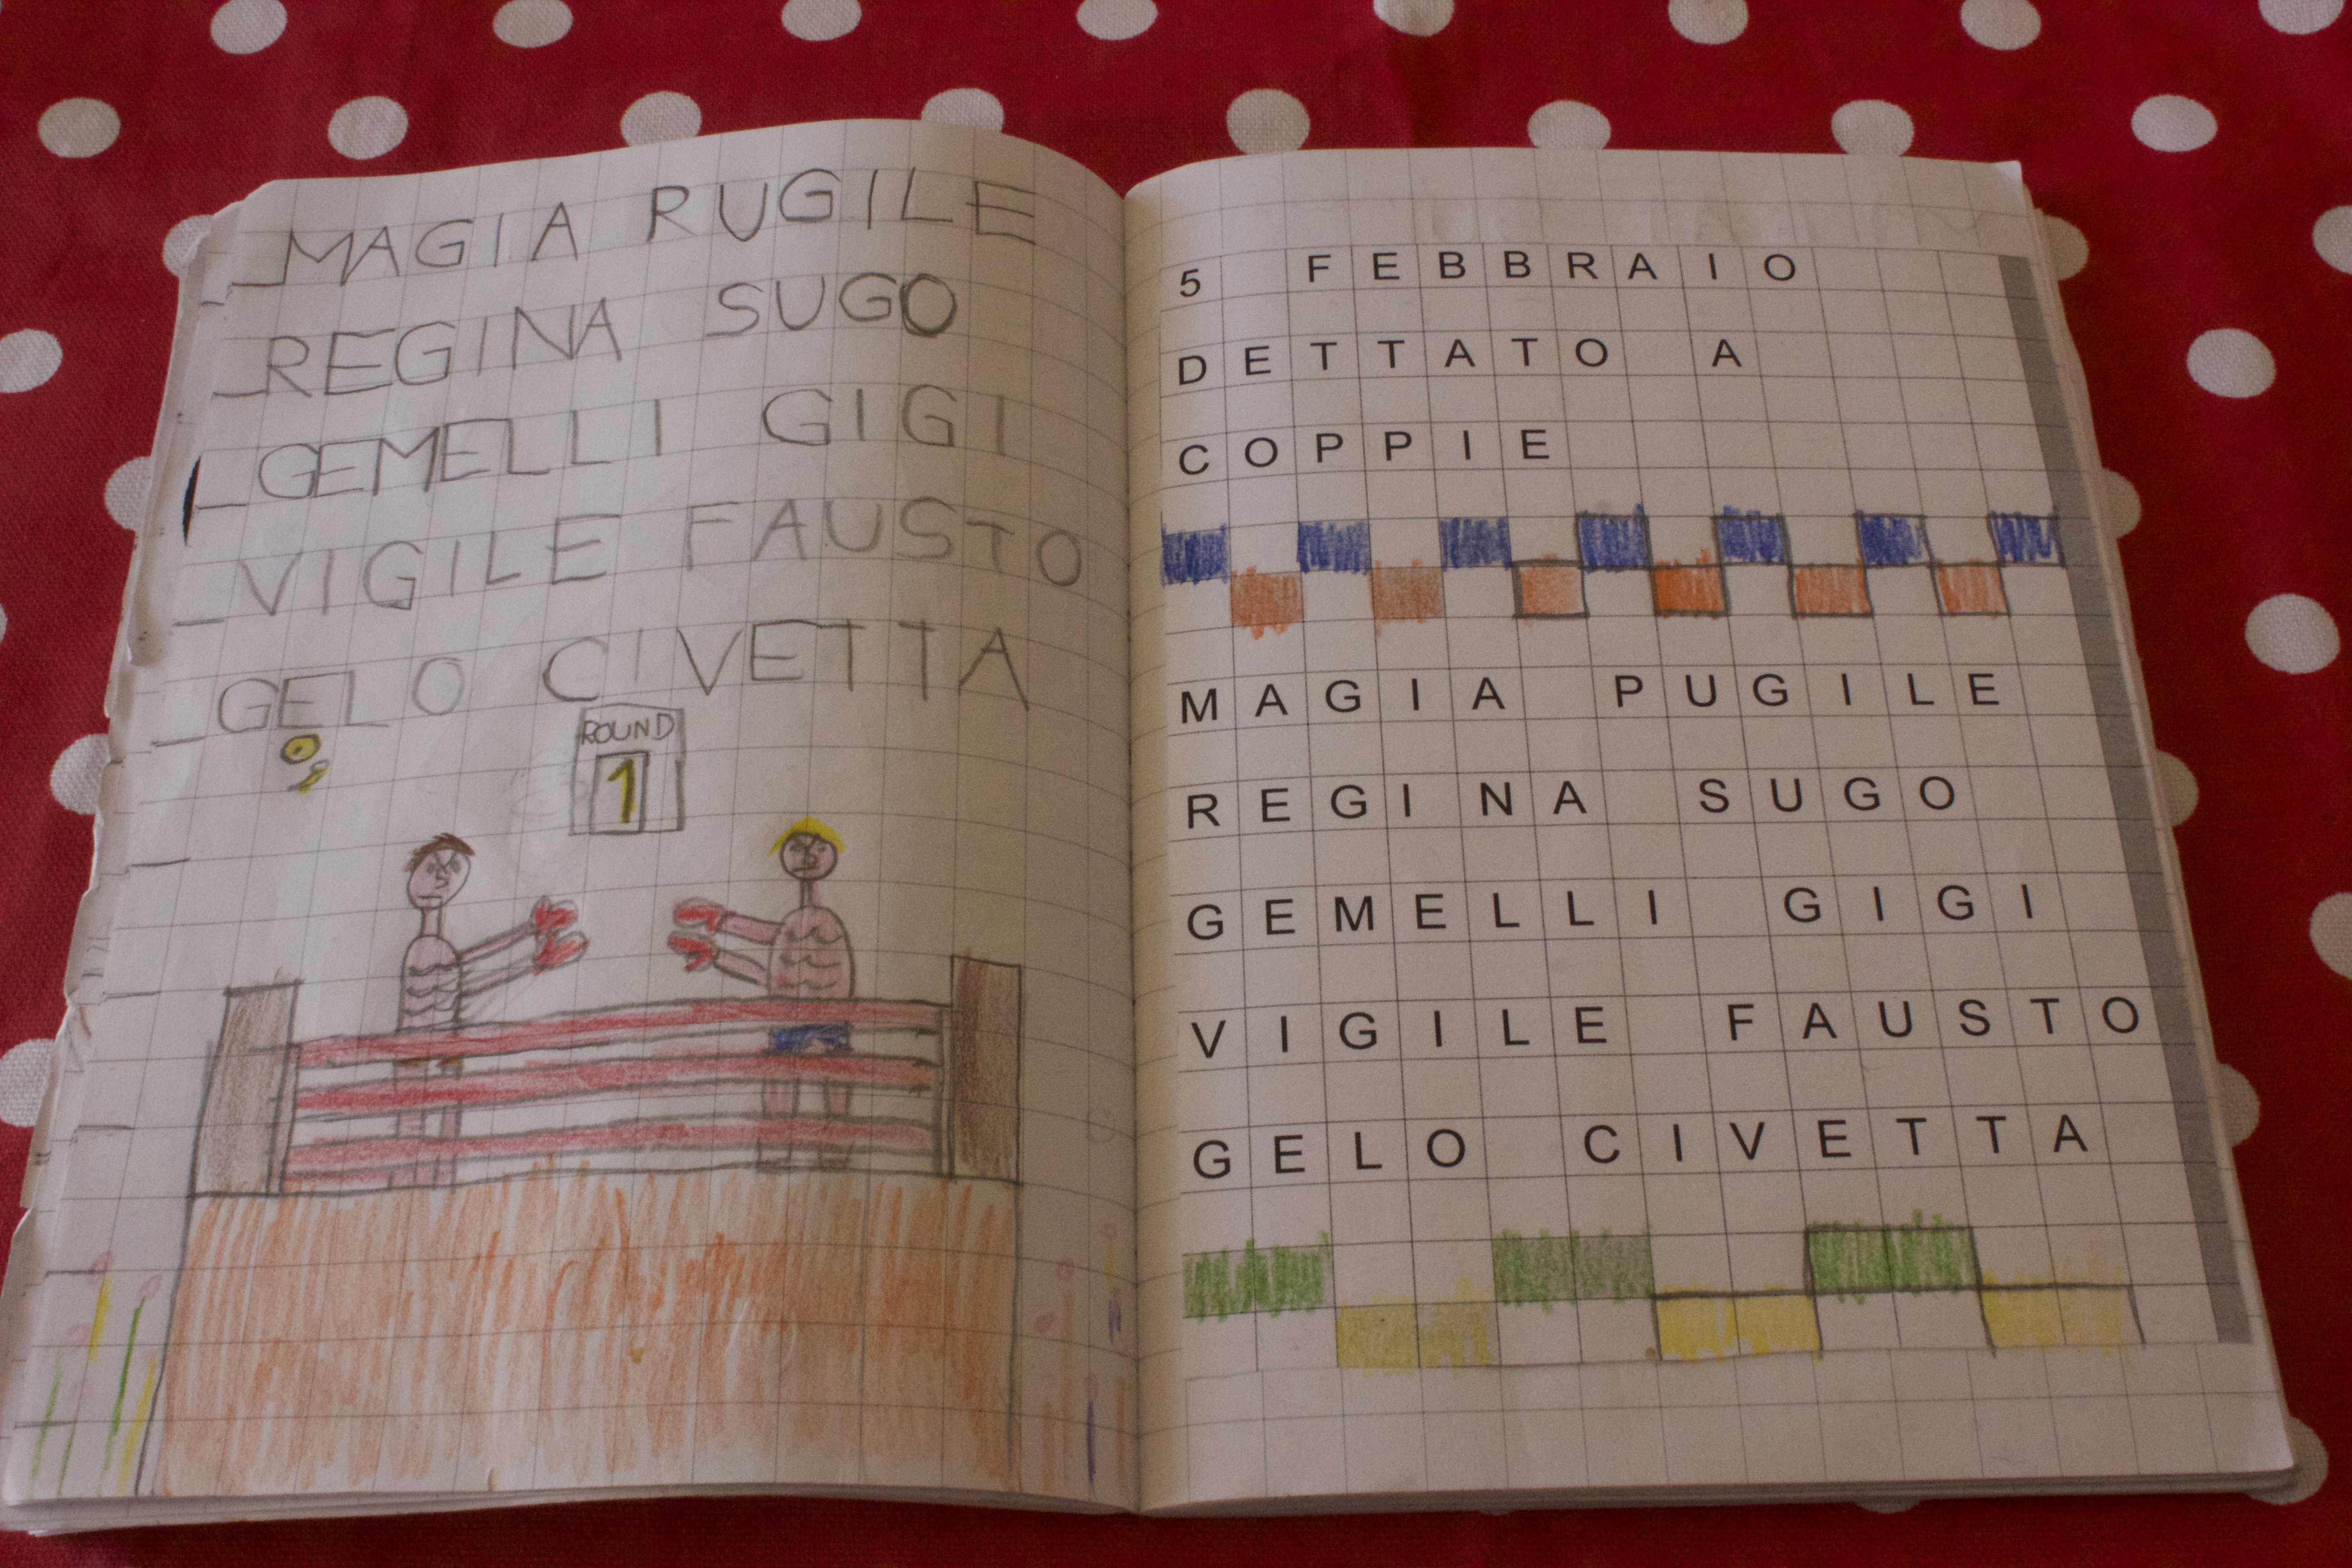 MAGIA RUGILE
REGINA SUGO
GEMELLI GIGI
VIGILE FAUSTO
GELO CIVETTA
ROUND
1
5 FEBBRAIO
DETTATO A
COPPIE
MAGIA PUGILE
REGINA SUGO
GEMELLI GIGI
VIGILE FAUSTO
GELO CIVETTA